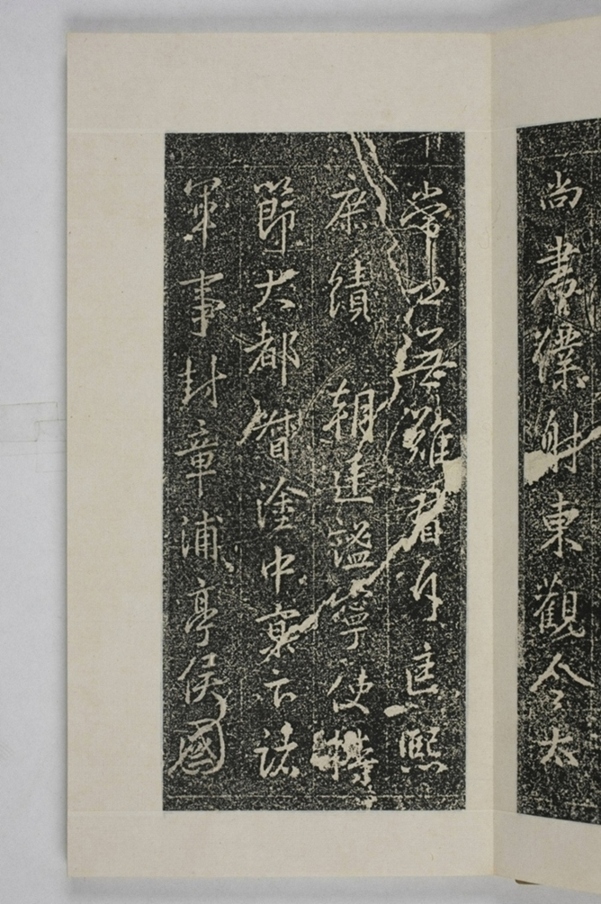 尚書僕射東觀令太
常無難匡熙
庶績朝廷謐寧使持
節大都督塗中京下諸
軍事封章浦亭侯國